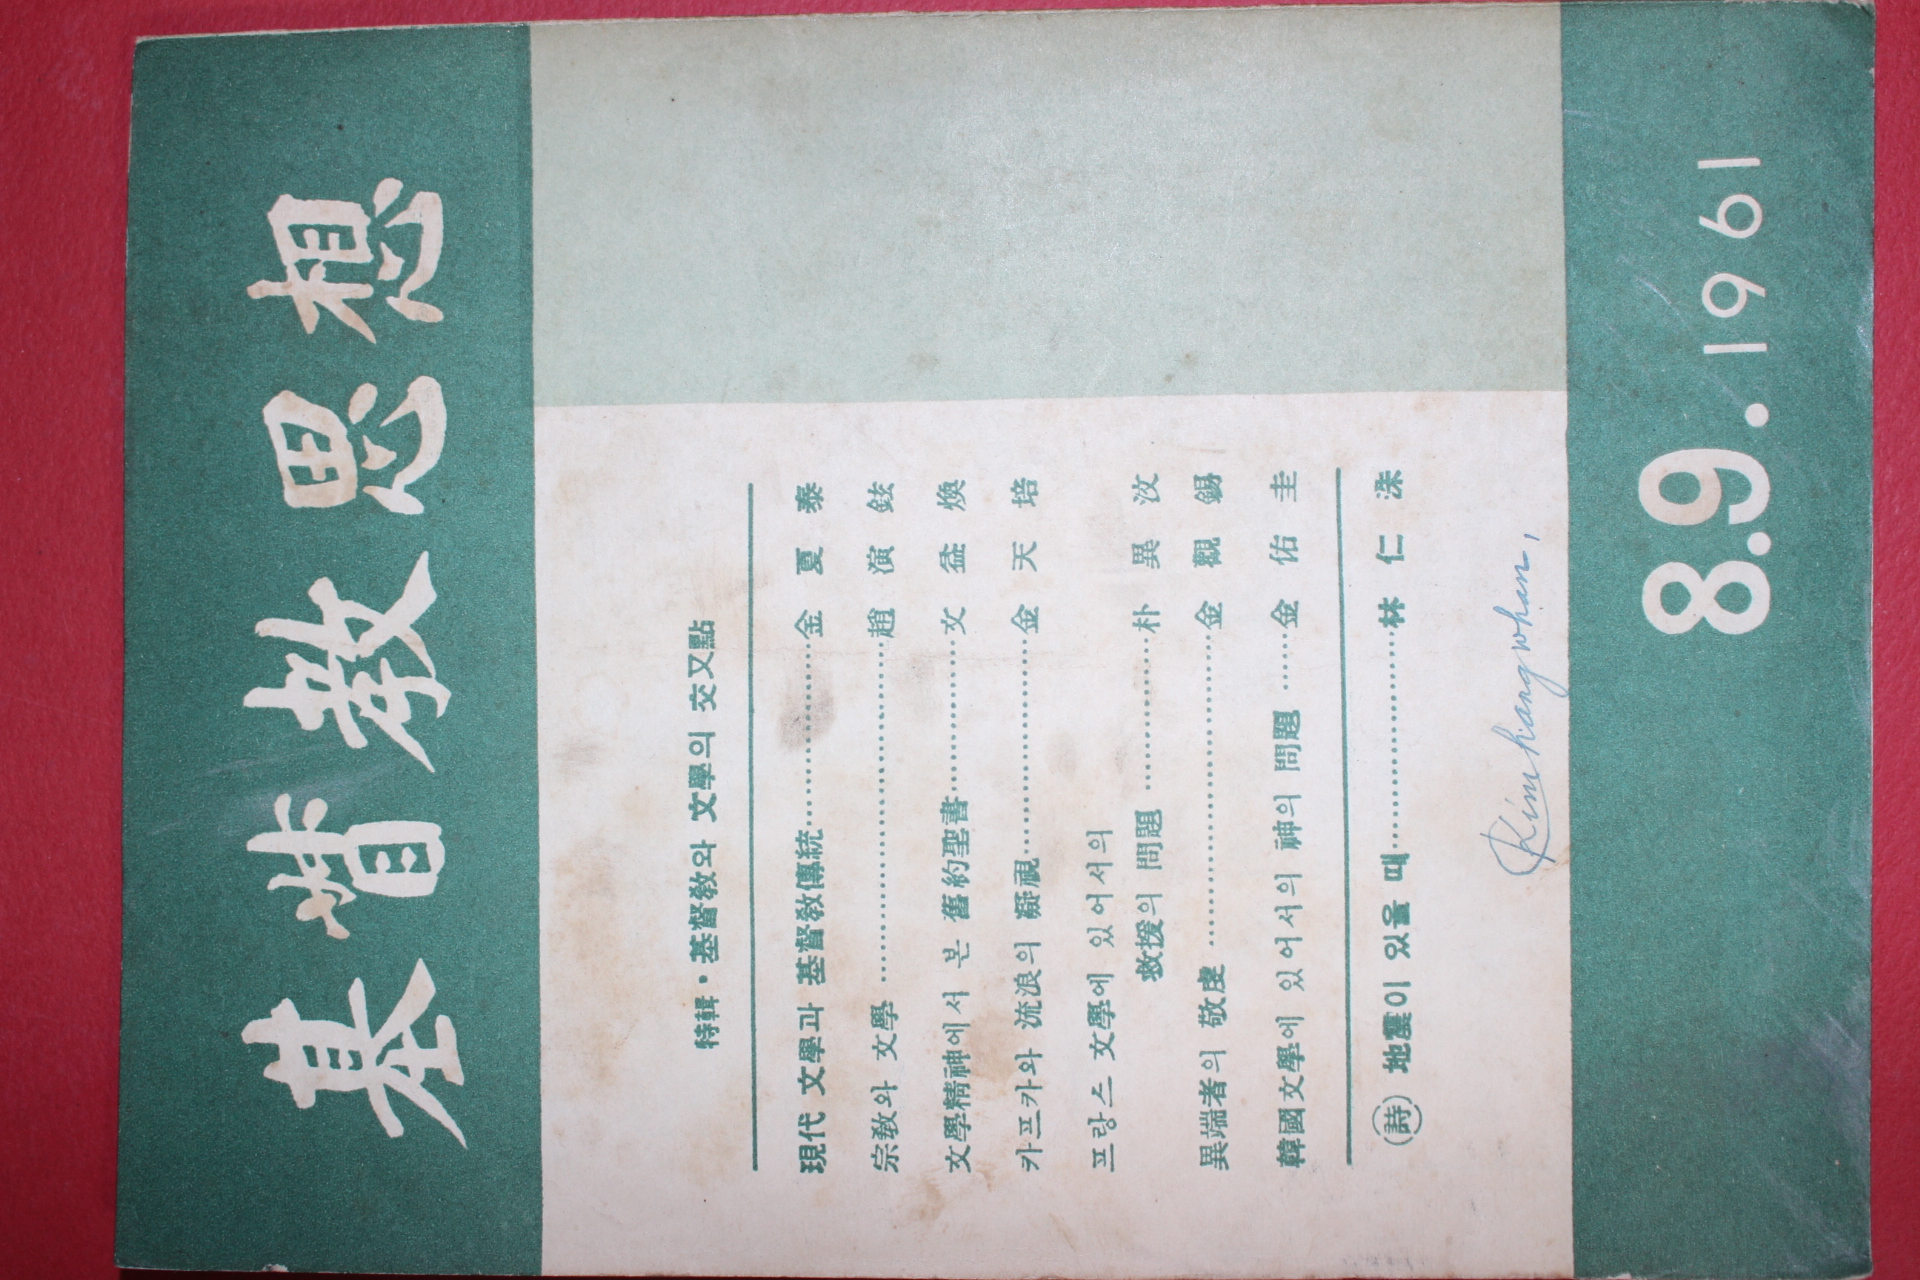 基督教思想
特輯・基督敎와 文學의 交叉點
現代 文學과 基督敎傳統……金夏泰
宗敎와 文學……趙演鉉
文學精神에서 본 舊約聖書……文益煥
카프카와 流浪의 凝視……金天培
프랑스 文學에 있어서의
救援의 問題……朴異汶
異端者의 敬虔……金觀錫
韓國文學에 있어서의 神의 問題……金佑圭
(詩) 地震이 있을 때……林仁洙
Kimhangwhan,
8.9.1961